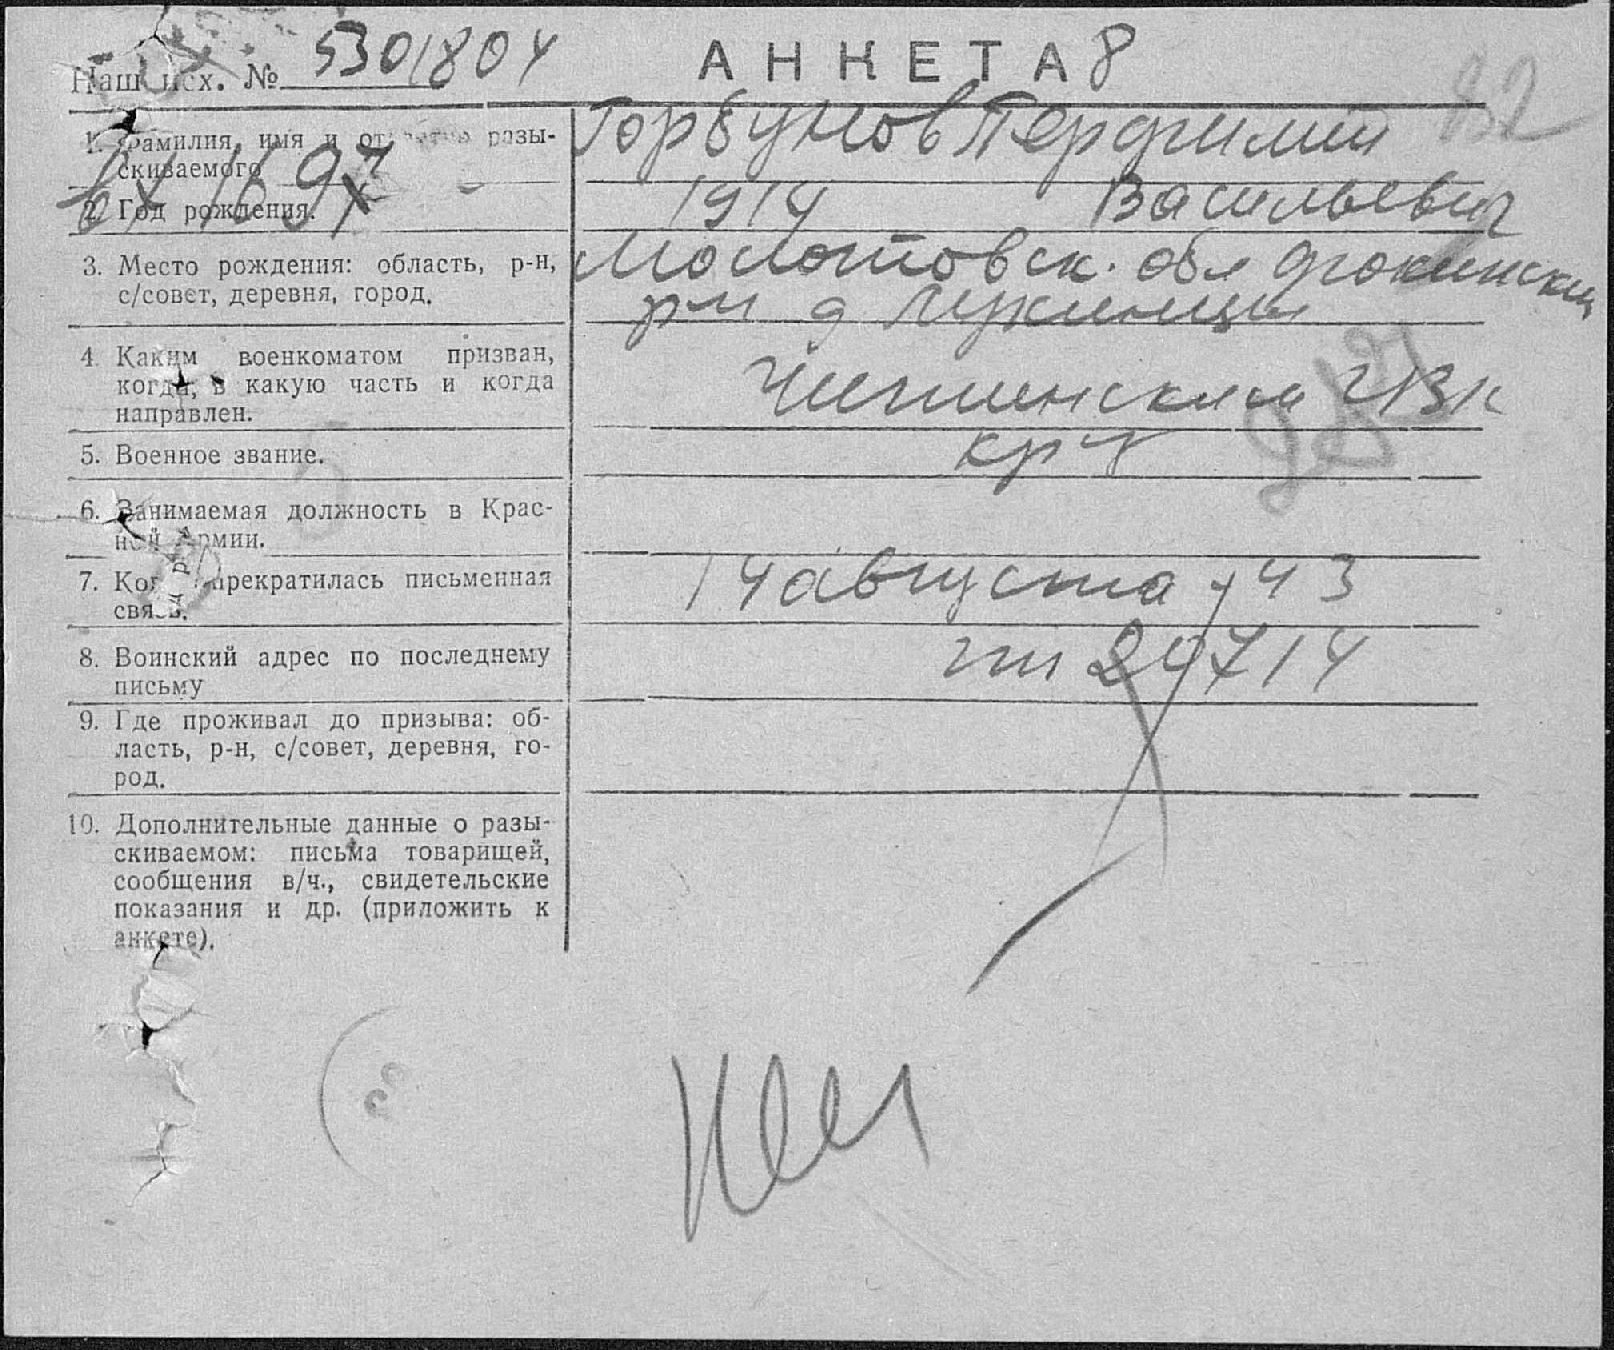 Наш исх. № 5301804 АНКЕТА 8
82
1. Фамилия, имя и отчество разы-
скиваемого
Горбунов Перфилий
Васильевич
2. Год рождения.
1914
3. Место рождения: область, р-н,
с/совет, деревня, город.
Молотовск. обл
рн д Лукинцы
4. Каким военкоматом призван,
когда, в какую часть и когда
направлен.
ГВК
5. Военное звание.
кр-ц
6. Занимаемая должность в Крас-
ной Армии.
7. Когда прекратилась письменная
связь.
14 августа 43
8. Воинский адрес по последнему
письму
пп 24714
9. Где проживал до призыва: об-
ласть, р-н, с/совет, деревня, го-
род.
10. Дополнительные данные о разы-
скиваемом: письма товарищей,
сообщения в/ч., свидетельские
показания и др. (приложить к
анкете).